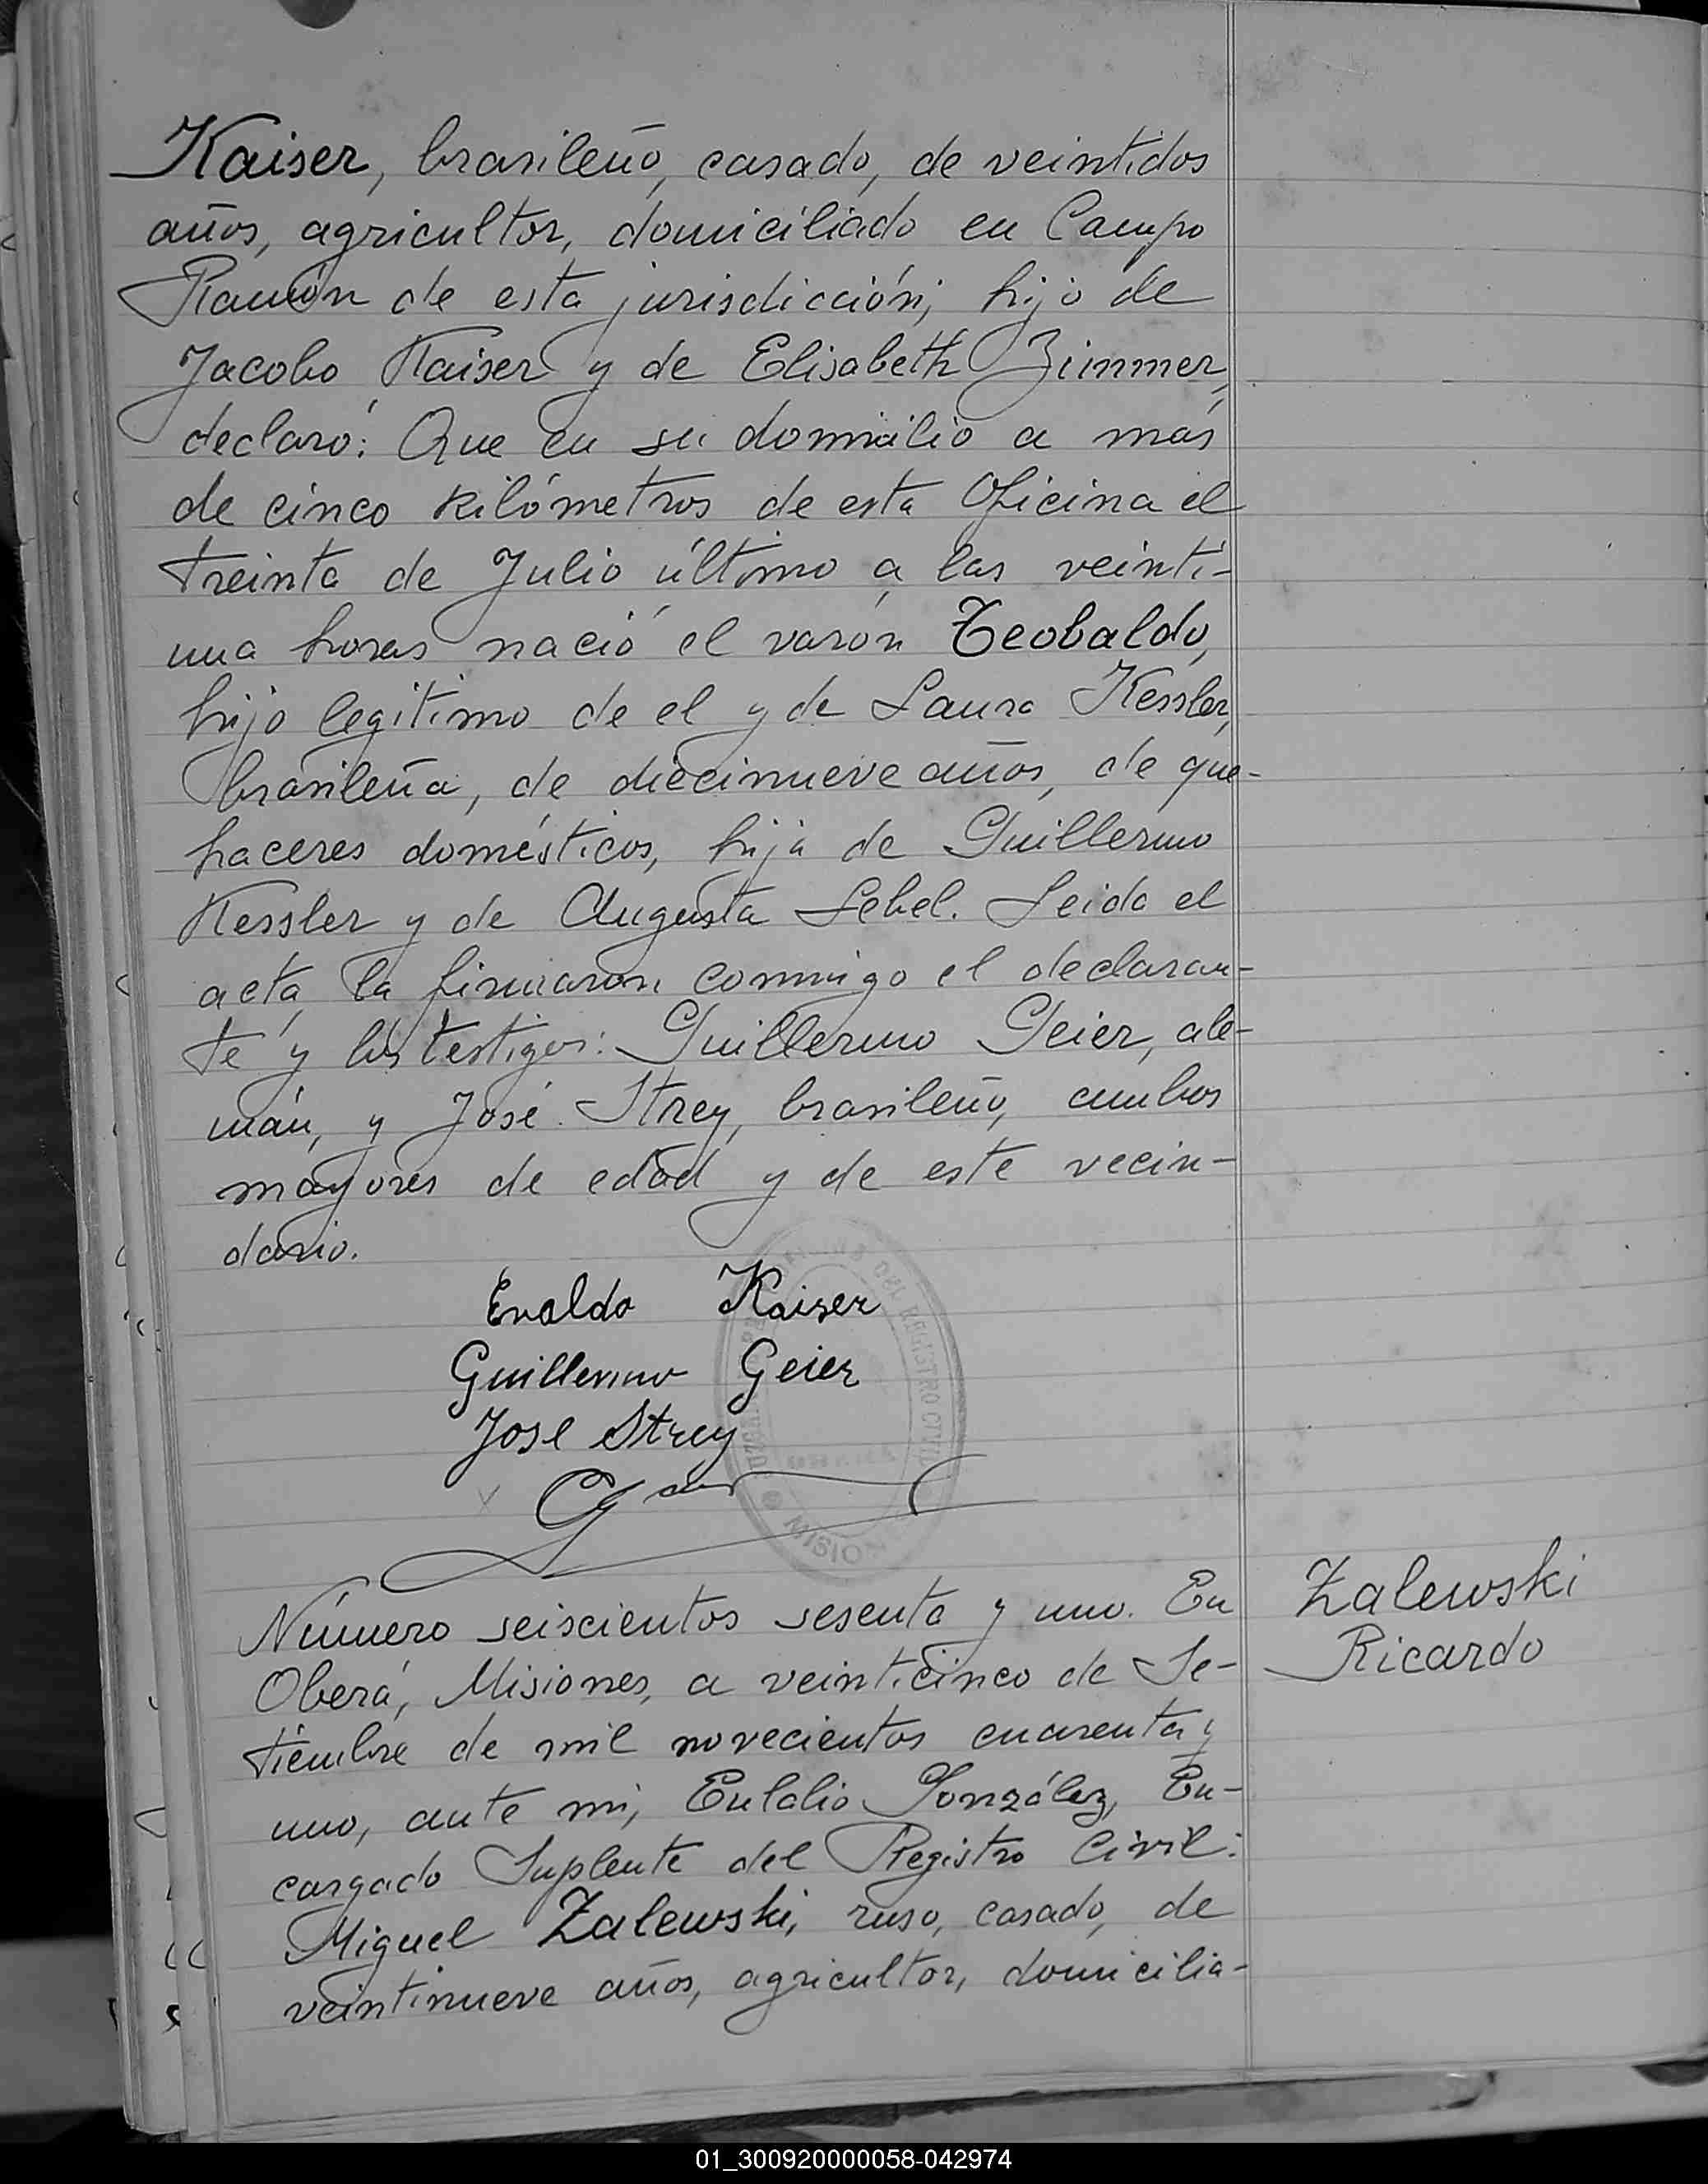 Kaiser, brasileño, casado, de veintidos
años, agricultor, domiciliado en Campo
Ramón de esta jurisdicción, hijo de
Jacobo Kaiser y de Elisabeth Zimmer,
declaró: Que en su domicilio a más
de cinco kilómetros de esta Oficina el
treinta de Julio último a las veinti-
una horas nació el varón Teobaldo,
hijo legítimo de el y de Laura Kessler,
brasileña, de diecinueve años, de que-
haceres domésticos, hija de Guillermo
Kessler y de Augusta Lebel. Leida el
acta, la firmaron conmigo el declaran-
te y los testigos: Guillermo Geier, ale-
mán, y José Strey, brasileño, ambos
mayores de edad y de este vecin-
dario.
Evaldo Kaiser
Guillermo Geier
Jose Strey
DEL REGISTRO CIVIL
MISION
Número seiscientos sesenta y uno. En
Oberá, Misiones, a veinticinco de Se-
tiembre de mil novecientos cuarenta y
uno, ante mi, Eulalio González, En-
cargado Suplente del Registro Civil:
Miguel Zalewski, ruso, casado, de
veintinueve años, agricultor, domicilia-
Zalewski
Ricardo
01_300920000058-042974